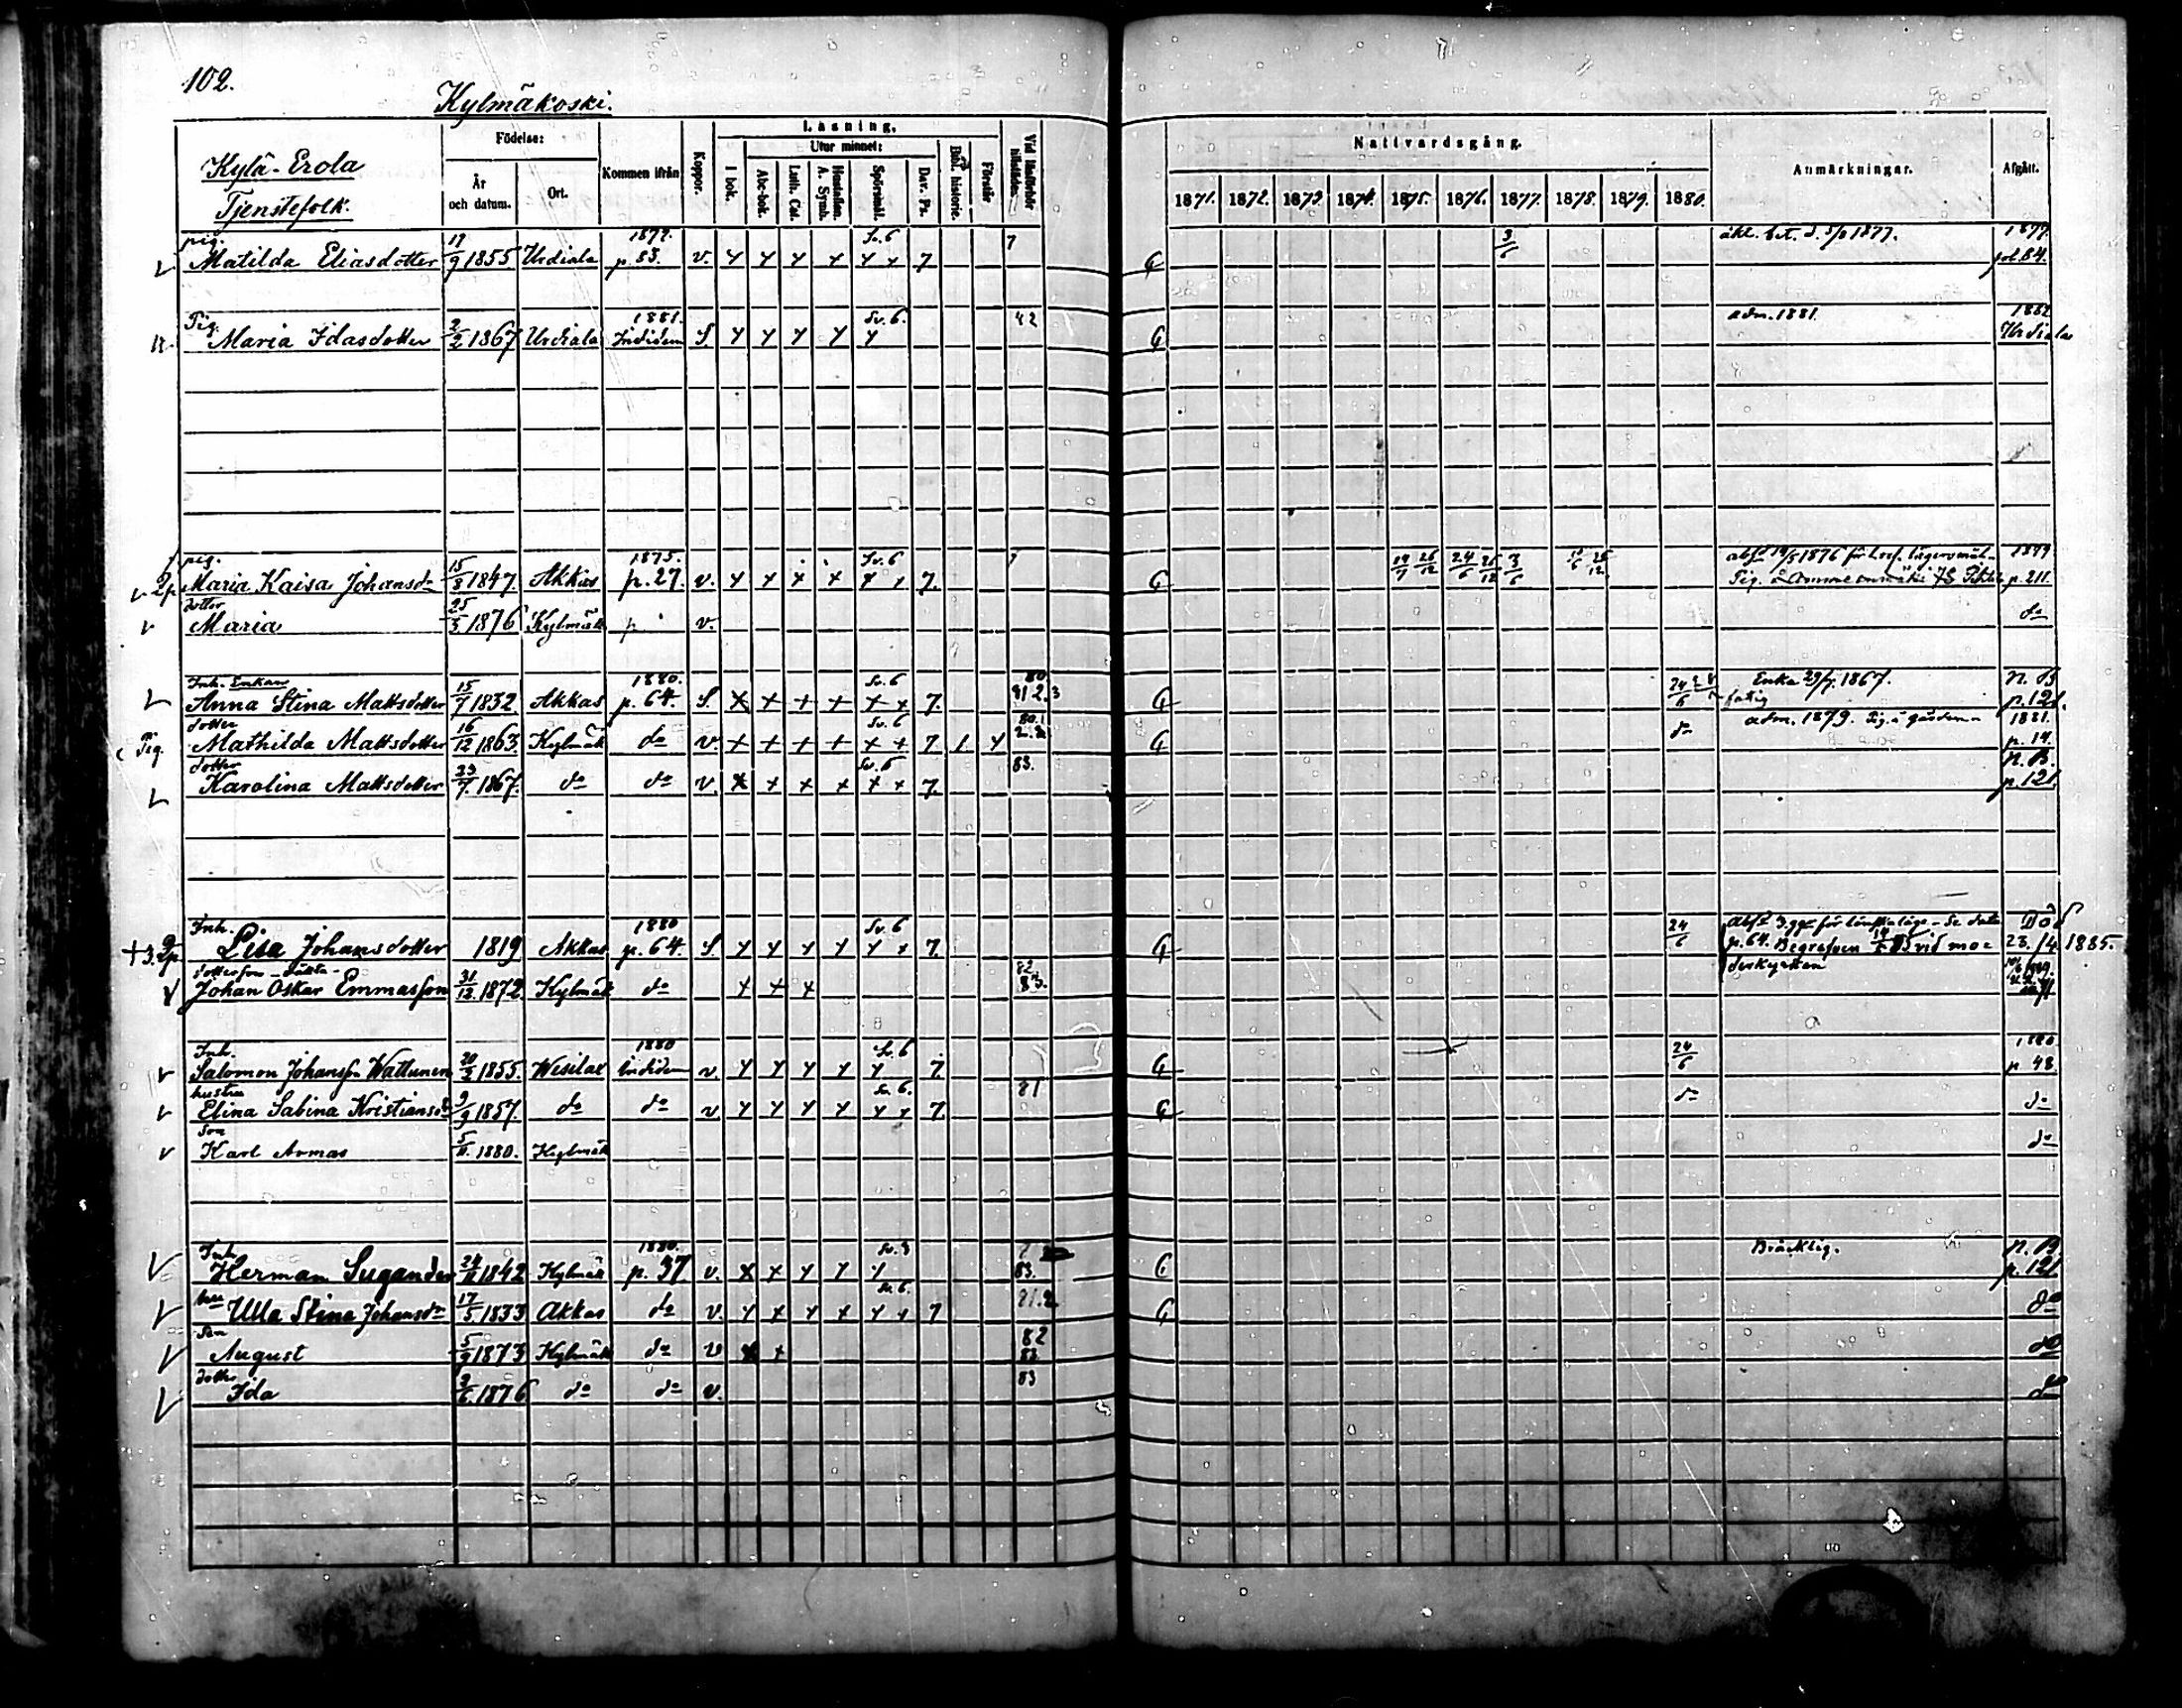 102.
Kylmäkoski.
Kylä-Erola
Tjenstefolk.
Födelse:
År och datum.
Ort.
Kommen ifrån
Koppor.
Läsning.
I bok.
Utur minnet:
Abc-bok.
Luth. Cat.
Hustaflan. A. Symb.
Spörsmål.
Dav. Ps.
Bibl. historie.
Förstår
Vid läsförhör tillstädes.
Nattvardsgång.
1871. 1872. 1873. 1874. 1875. 1876. 1877. 1878. 1879. 1880.
Anmärkningar.
Afgått.
pig. Matilda Eliasdotter 17/9 1855 Urdiala p. 83. v. Sv. 6 7 7 G 3/6 1877.
Pig. Maria Idasdotter 2/2 1867 Urdiala 1881. Indidem S Sv. 6. 42 G adm. 1881. 1882 Urdiala
pig. Maria Kaisa Johansd:r 15/8 1847. Akkas 1875. p. 27. v. Sv. 6 7. G 24/6 3/6 p. 211.
dotter Maria 25/5 1876 Kylmäk p v. d:o
Inh. Enkan Anna Stina Mattsdotter 15/7 1832. Akkas 1880. p. 64. S. Sv. 6 7. G 24/6 Enka 29/7. 1867. fatig N. B. p. 121.
dotter Mathilda Mattsdotter 16/12 1863. Kylmäk d:o v. Sv. 6 7 1. G d:o adm. 1879. Pig. i gården 1881. p. 14.
dotter Karolina Mattsdotter 23/7 1867. d:o d:o v. Sv. 6 7. 83. N. B. p. 121.
Inh. Lisa Johansdotter 1819 Akkas 1880 p. 64. S. Sv. 6 7. G 24/6 p. 64. Begrafven vid moderkyrkan Död 23/4 1885.
dotterson Johan Oskar Emmasson 31/12 1872. Kylmäk d:o 82. 83.
Inh. Salomon Johansson Wattunen 20/2 1855. Wesilax 1880 Indidem v. Sv. 6 7. G 24/6 1880 p 48.
hustru Elina Sabina Kristiansd 9/9 1857. d:o d:o v Sv. 6. 7. 81 G d:o d:o
Son Karl Armas 5/11. 1880. Kylmäk d:o
Inh. Herman Sugander 24/11 1842 Kylmäk 1880. p. 37 v. Sv. 3 83. G Bräcklig. N. B. p. 121
hu Ulla Stina Johansd:r 17/5. 1833 Akkas d:o v. Sv. 6. 7 81.2 G d:o
Son August 5/9 1873 Kylmäk d:o v 82 83 d:o
dotter Ida 2/6. 1876 d:o d:o v. 83 d:o